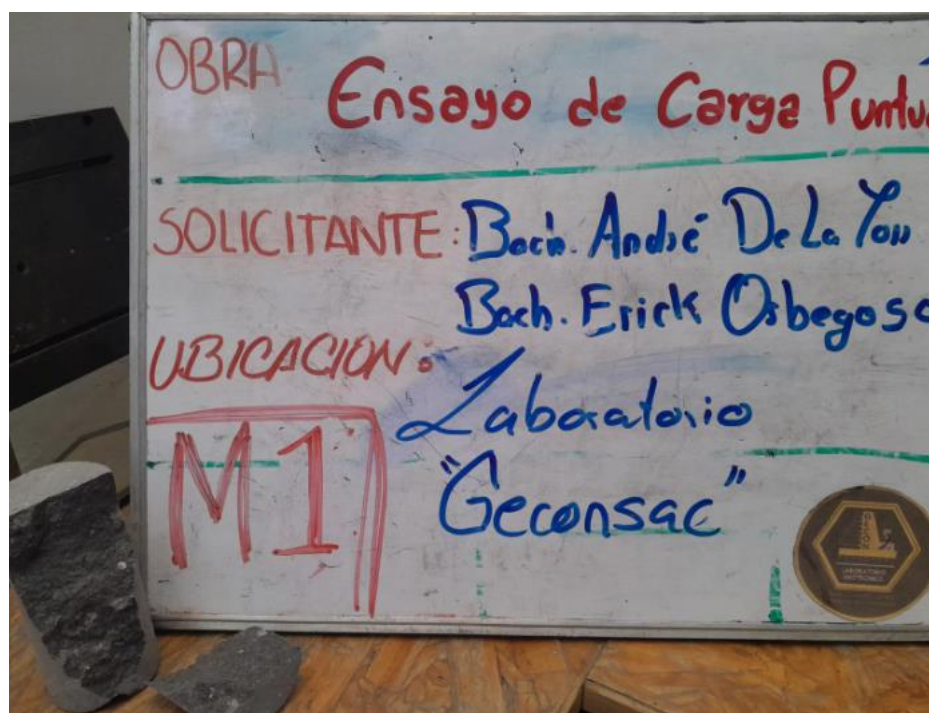 OBRA: Ensayo de Carga Puntua
SOLICITANTE: Bach. André De La
Bach. Erick Orbegoso
UBICACION:
Laboratorio
M1
"Geconsac"
LABORATORIO